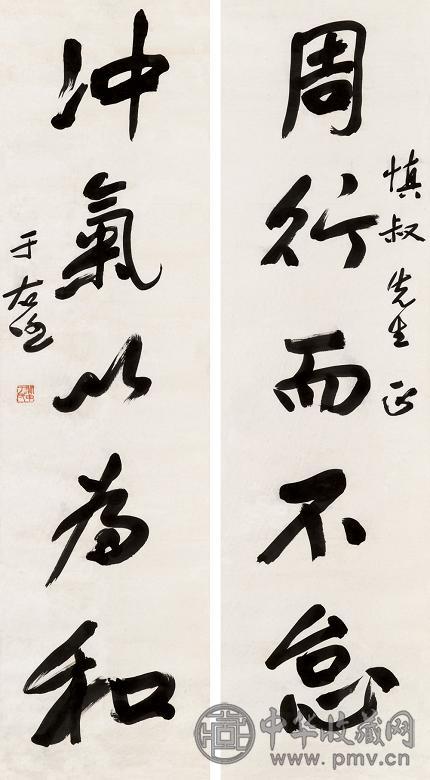 慎叔先生正
周行而不怠
沖氣以為和
于右任
中华收藏网
www.pmv.cn